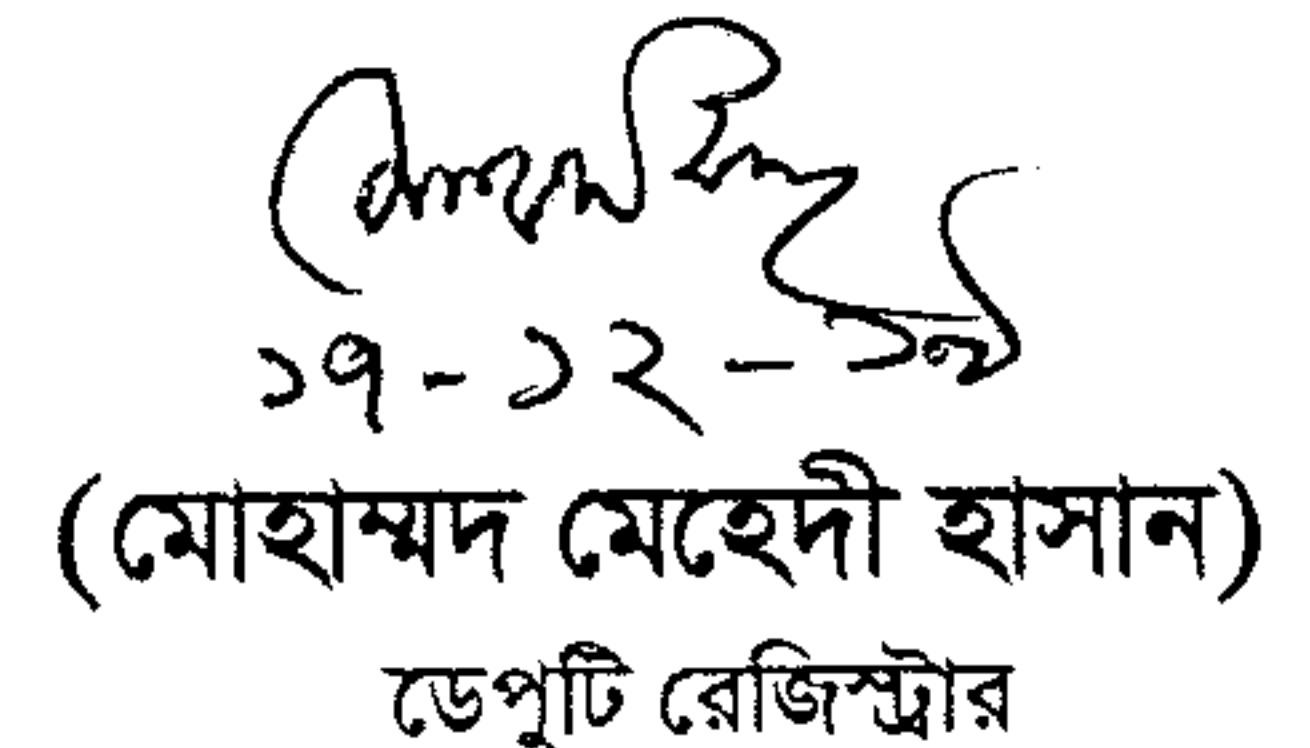 ১৭-১২-১৮
(মোহাম্মদ মেহেদী হাসান)
ডেপুটি রেজিস্ট্রার